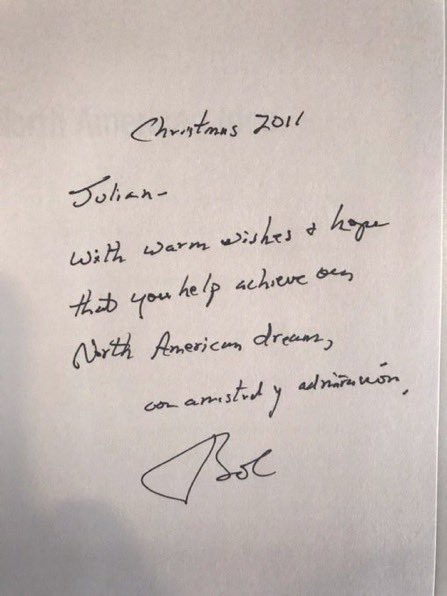 Christmas 2011
Julian-
with warm wishes & hope
that you help achieve our
North American dreams,
con amistad y admiración,
Bob